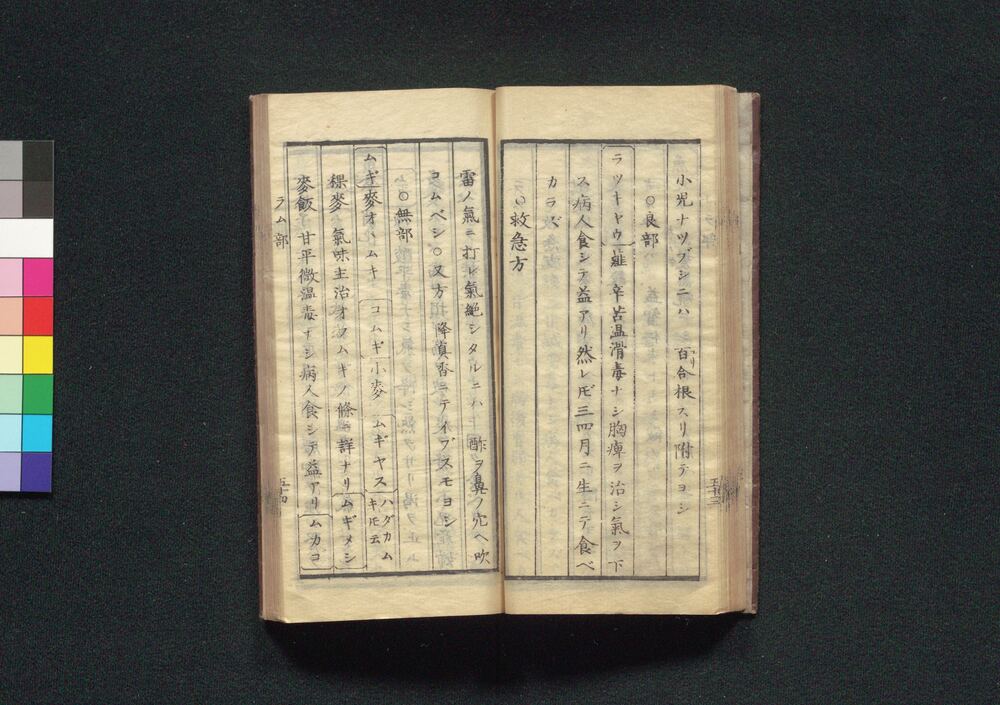 小児ナツブシニハ 百合根スリ附テヨシ
○良部
ラツキヤウ 薤 辛苦温滑毒ナシ胸痺ヲ治シ氣ヲ下
ス病人食シテ益アリ然レ𪜈三四月ニ生ニテ食ベ
カラズ
○救急方
雷ノ氣ニ打レ氣絶シタルニハ 酢ヲ鼻ノ穴ヘ吹
コムベシ○又方 降真香ニテイブスモヨシ
○無部
ムギ 麥オホムキ コムギ 小麥 ムギヤス ハダカムキ𪜈云
稞麥 氣味主治オホムギノ條ニ詳ナリ ムギメシ
麥飯 甘平微温毒ナシ病人食シテ益アリ ムカコ
ラム部
五十三
五十四